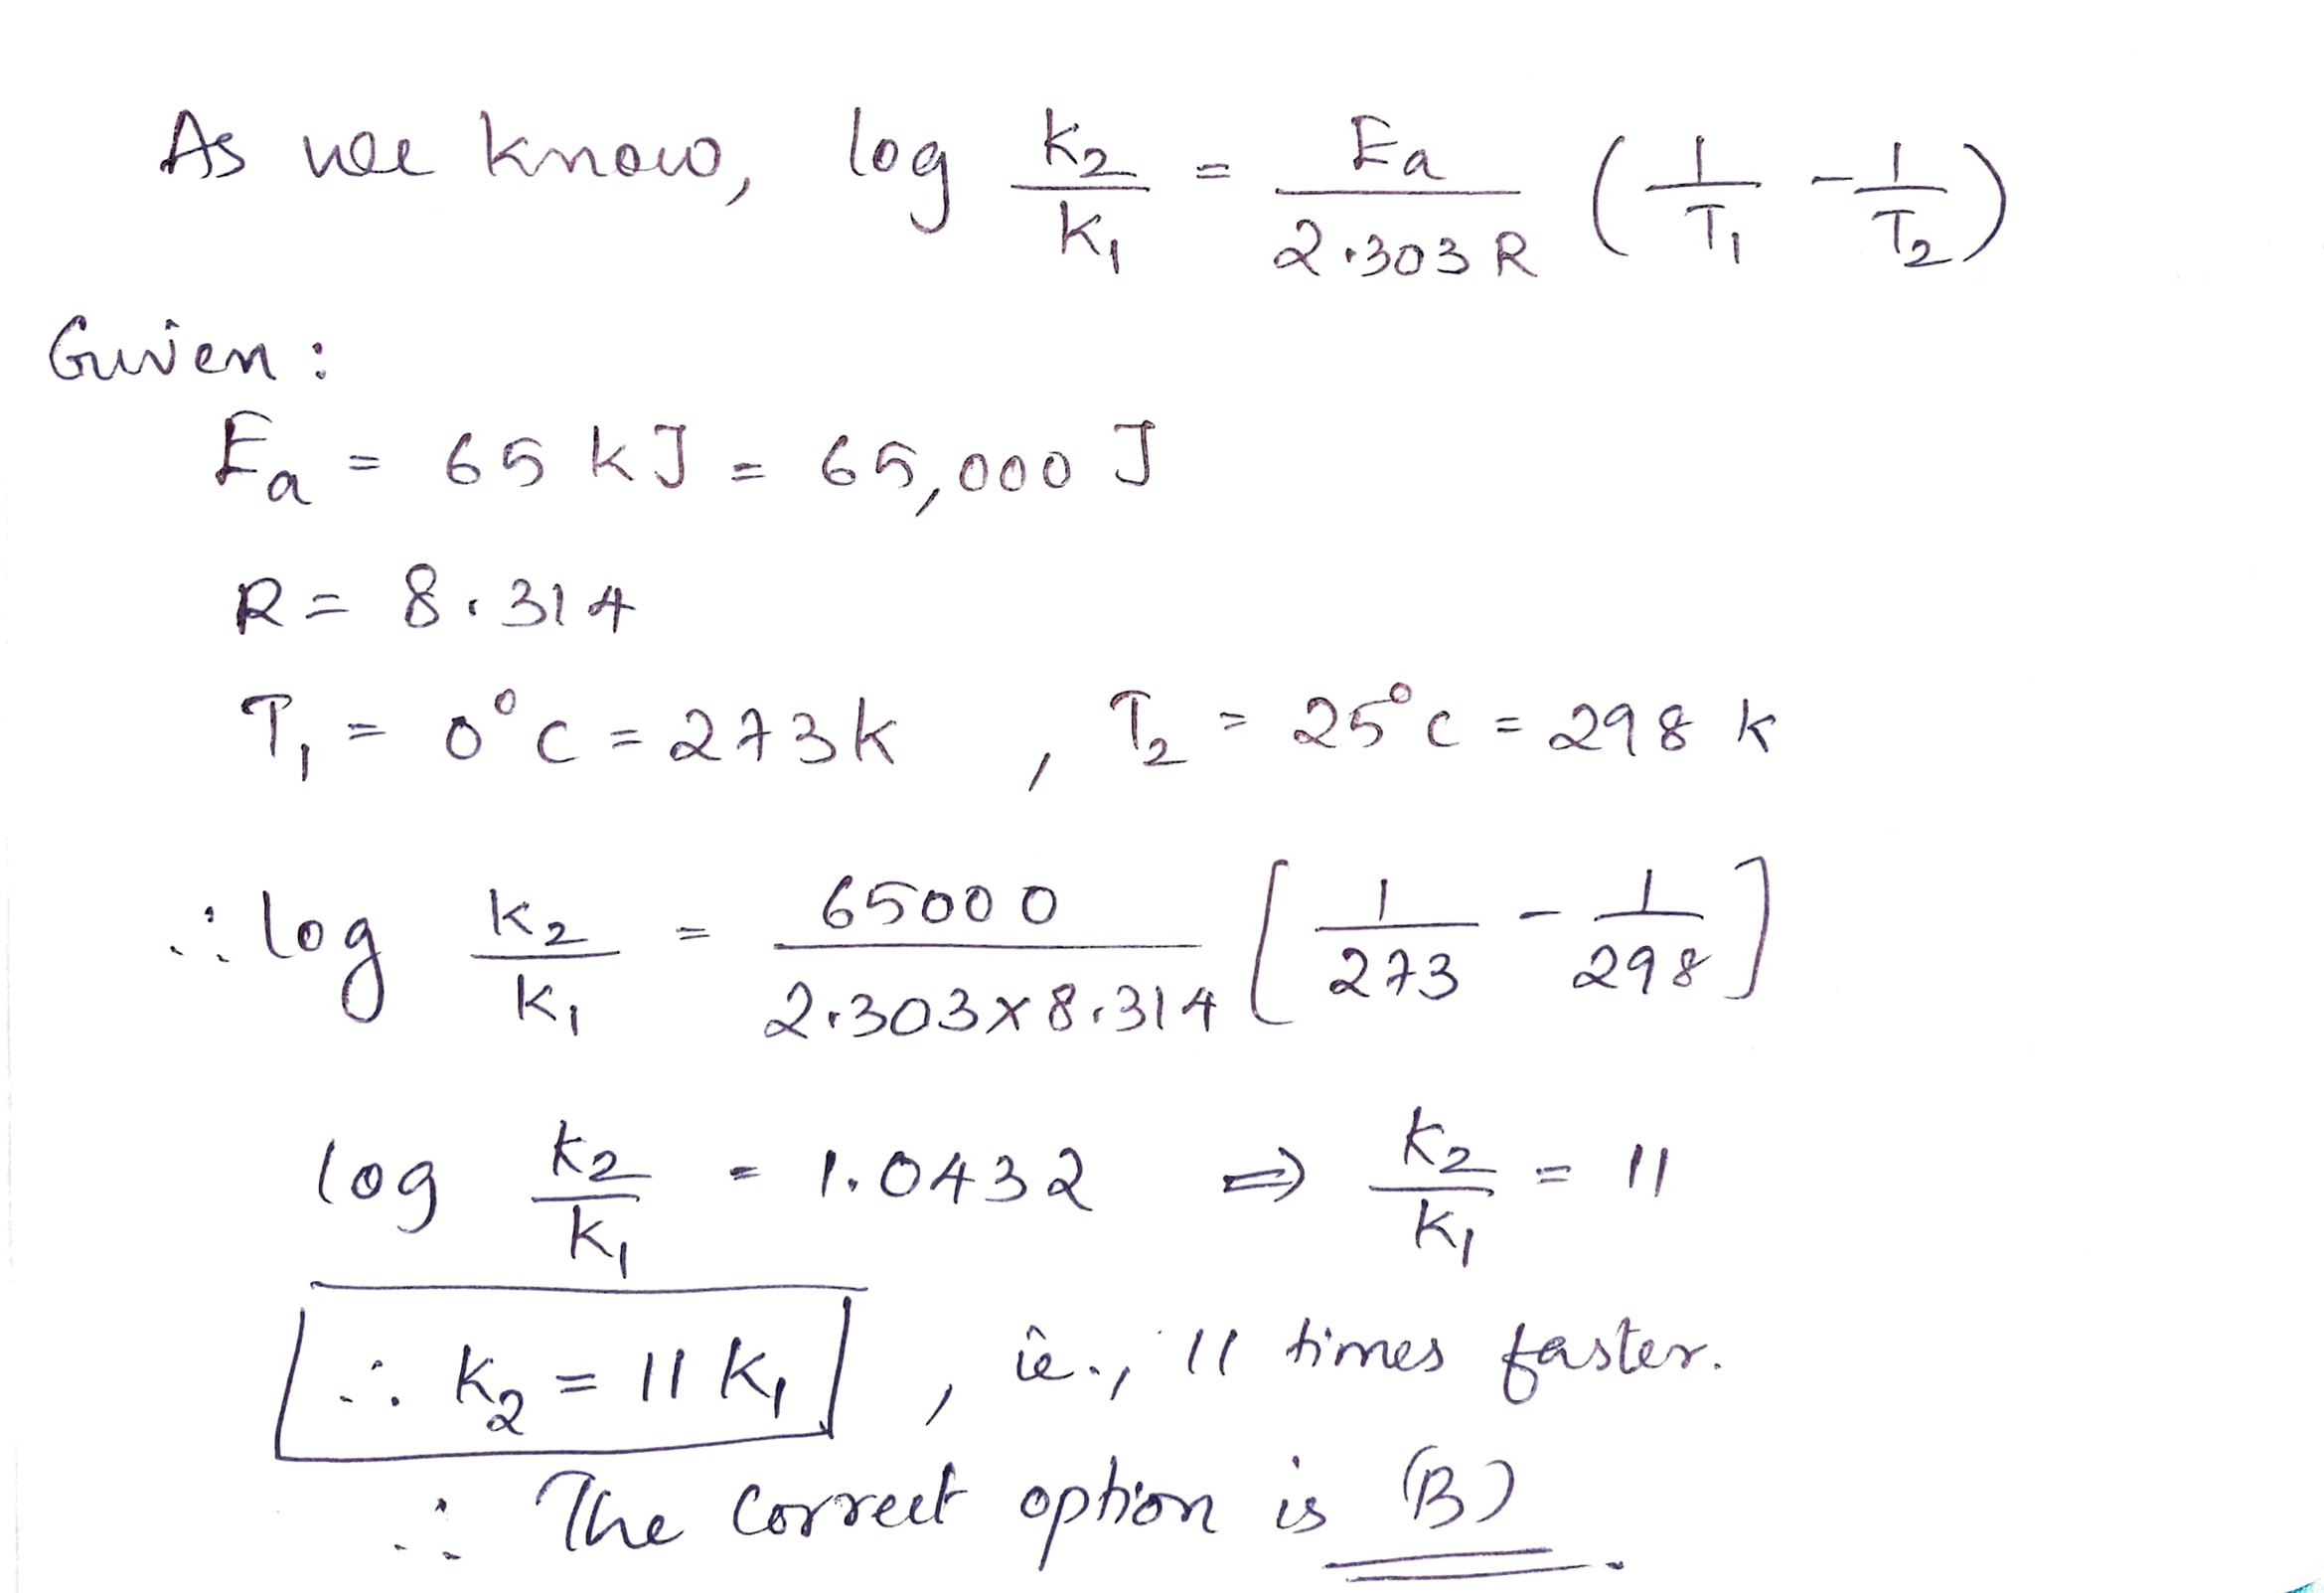 As we know, log K₂/K₁ = Ea/2.303R (1/T₁ - 1/T₂)
Given:
Ea = 65 kJ = 65,000 J
R = 8.314
T₁ = 0°C = 273K , T₂ = 25°C = 298 K
∴ log K₂/K₁ = 65000/2.303×8.314 [1/273 - 1/298]
log K₂/K₁ = 1.0432 ⇒ K₂/K₁ = 11
∴ K₂ = 11 K₁ , ie., 11 times faster.
∴ The correct option is (B).